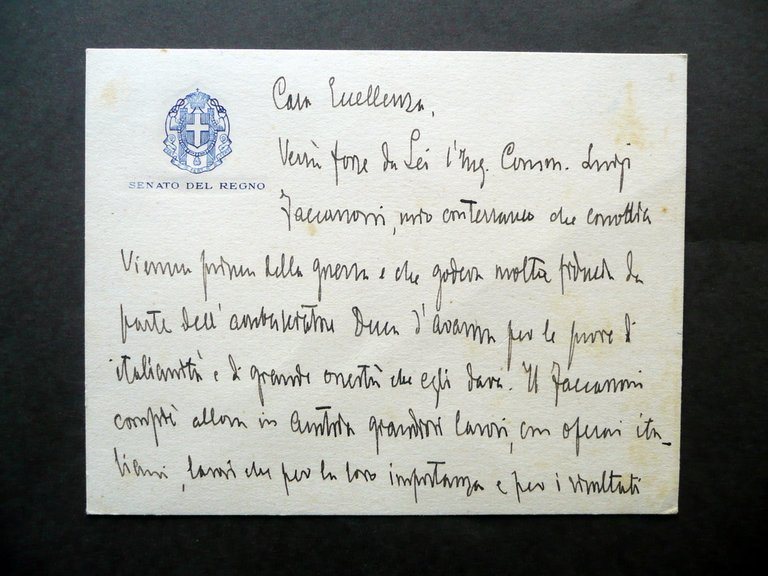 Cara Eccellenza,
SENATO DEL REGNO
Verrà forse da Lei l'Ing. Comm. Luigi
Zaccanoni, mio conterraneo che conobbi a
Vienna prima della guerra e che godeva molta fiducia da
parte dell'ambasciatore Duca d'Avarna per le prove di
italianità e di grande onestà che egli dava. Il Zaccanoni
compì allora in Austria grandiosi lavori, con operai ita-
liani, lavori che per la loro importanza e per i risultati